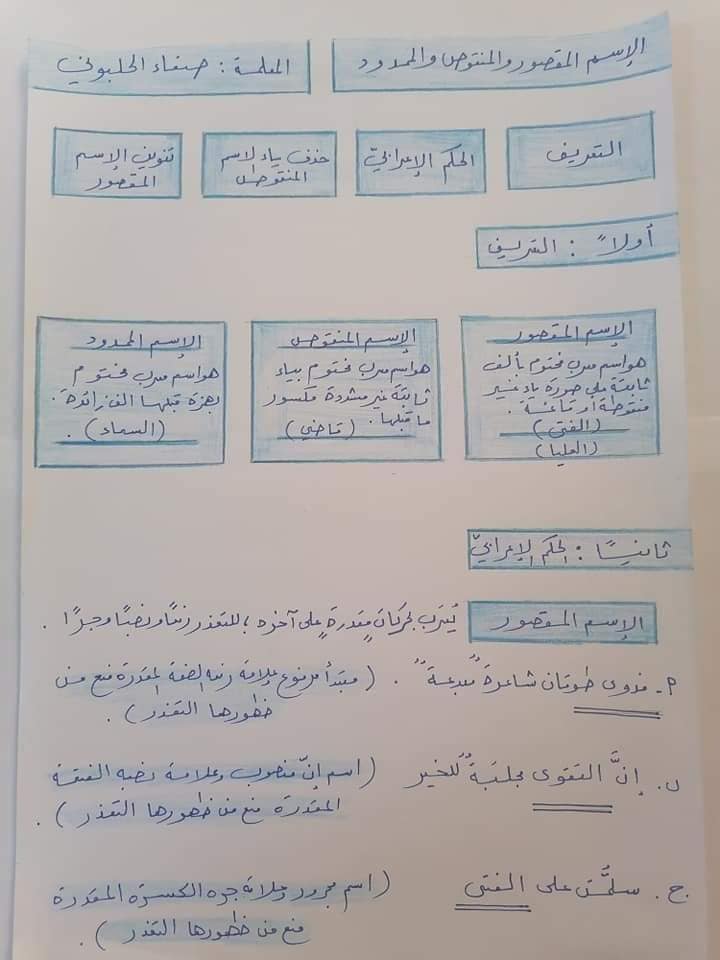 الإسم المقصور والمنقوص والممدود
المعلمة : صفاء الحلبوني
التعريف
الحكم الإعرابيّ
حذف ياء لاسم
المنقوص
تنوين الإسم
المقصور
أولاً : التعريف
الإسم المقصور
هو اسم معرب مختوم بألف
ثابتة على صورة ياء غير
منقوطة أو قائمة .
(الفتى)
(العليا)
الإسم المنقوص
هو اسم معرب مختوم بياء
ثابتة غير مشددة مكسور
ما قبلها . (قاضي)
الإسم الممدود
هو اسم معرب مختوم
بهمزة قبلها الف زائدة .
(السماء) .
ثانيًا : الحكم الإعرابيّ
الإسم المقصور
يُعرب بحركات مقدرةٍ على آخره ، للتعذر رفعًا ونصبًا وجرًا .
أ- فدوى طوقان شاعرةٌ مبدعةٌ . ( مبتدأ مرفوع وعلامة رفعه الضمة المقدرة منع من
ظهورها التعذر ) .
ب. إنَّ التقوى مجلبةٌ للخير ( اسم إنّ منصوب وعلامة نصبه الفتحة
المقدرة منع من ظهورها التعذر ) .
ج. سلمتُ على الفتى ( اسم مجرور وعلامة جره الكسرة المقدرة
منع من ظهورها التعذر ) .